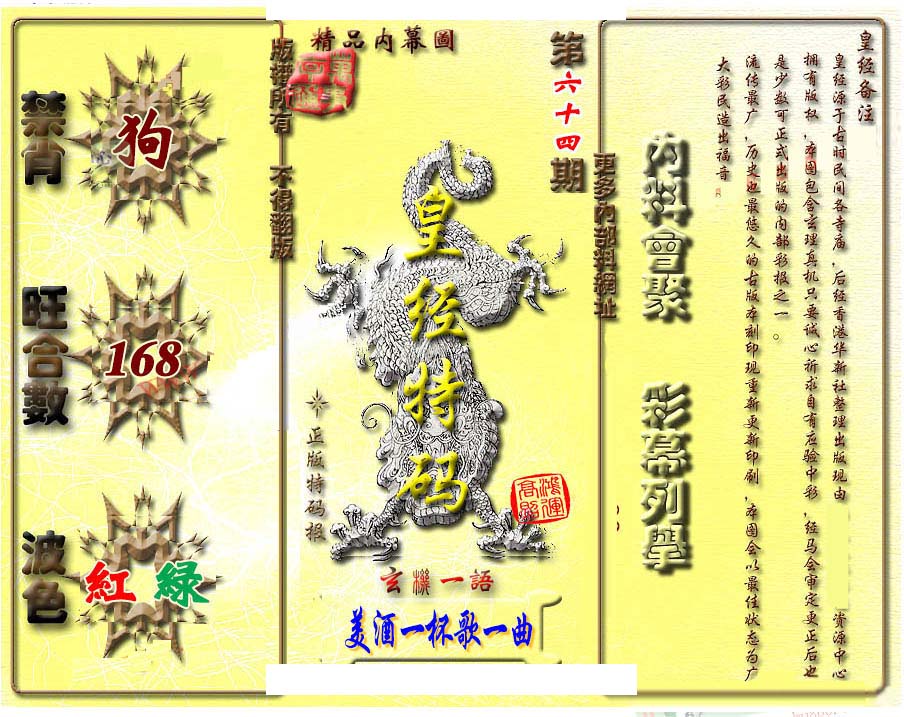 精品内幕圖
第六十四期
版權所有 不得翻版
更多內部料網址
禁肖
狗
旺合數
168
波色
紅 綠
皇经特码
正版特码报
鴻運高照
玄機一語
美酒一杯歌一曲
内料會聚
彩幕列舉
皇经备注
皇经源于古时民间各寺庙,后经香港华新社整理出版现由 资源中心
拥有版权,本图包含玄理真机只要诚心祈求自有应验中彩,经马会审定更正后也
是少数可正式出版的内部彩报之一。
流传最广,历史也最悠久的古版本刻印现重新更新印刷,本图会以最佳状态为广
大彩民造出福音